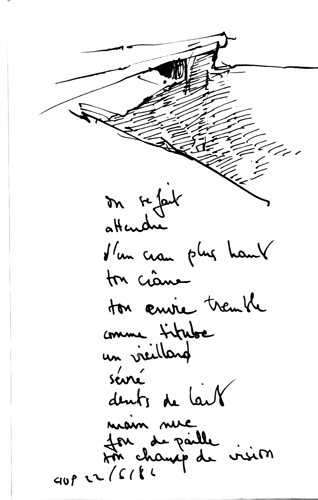 on se fait
attendre
d'un cran plus haut
ton crâne
ton envie tremble
comme titube
un vieillard
sévré
dents de lait
main nue
feu de paille
ton champ de vision
22/6/82